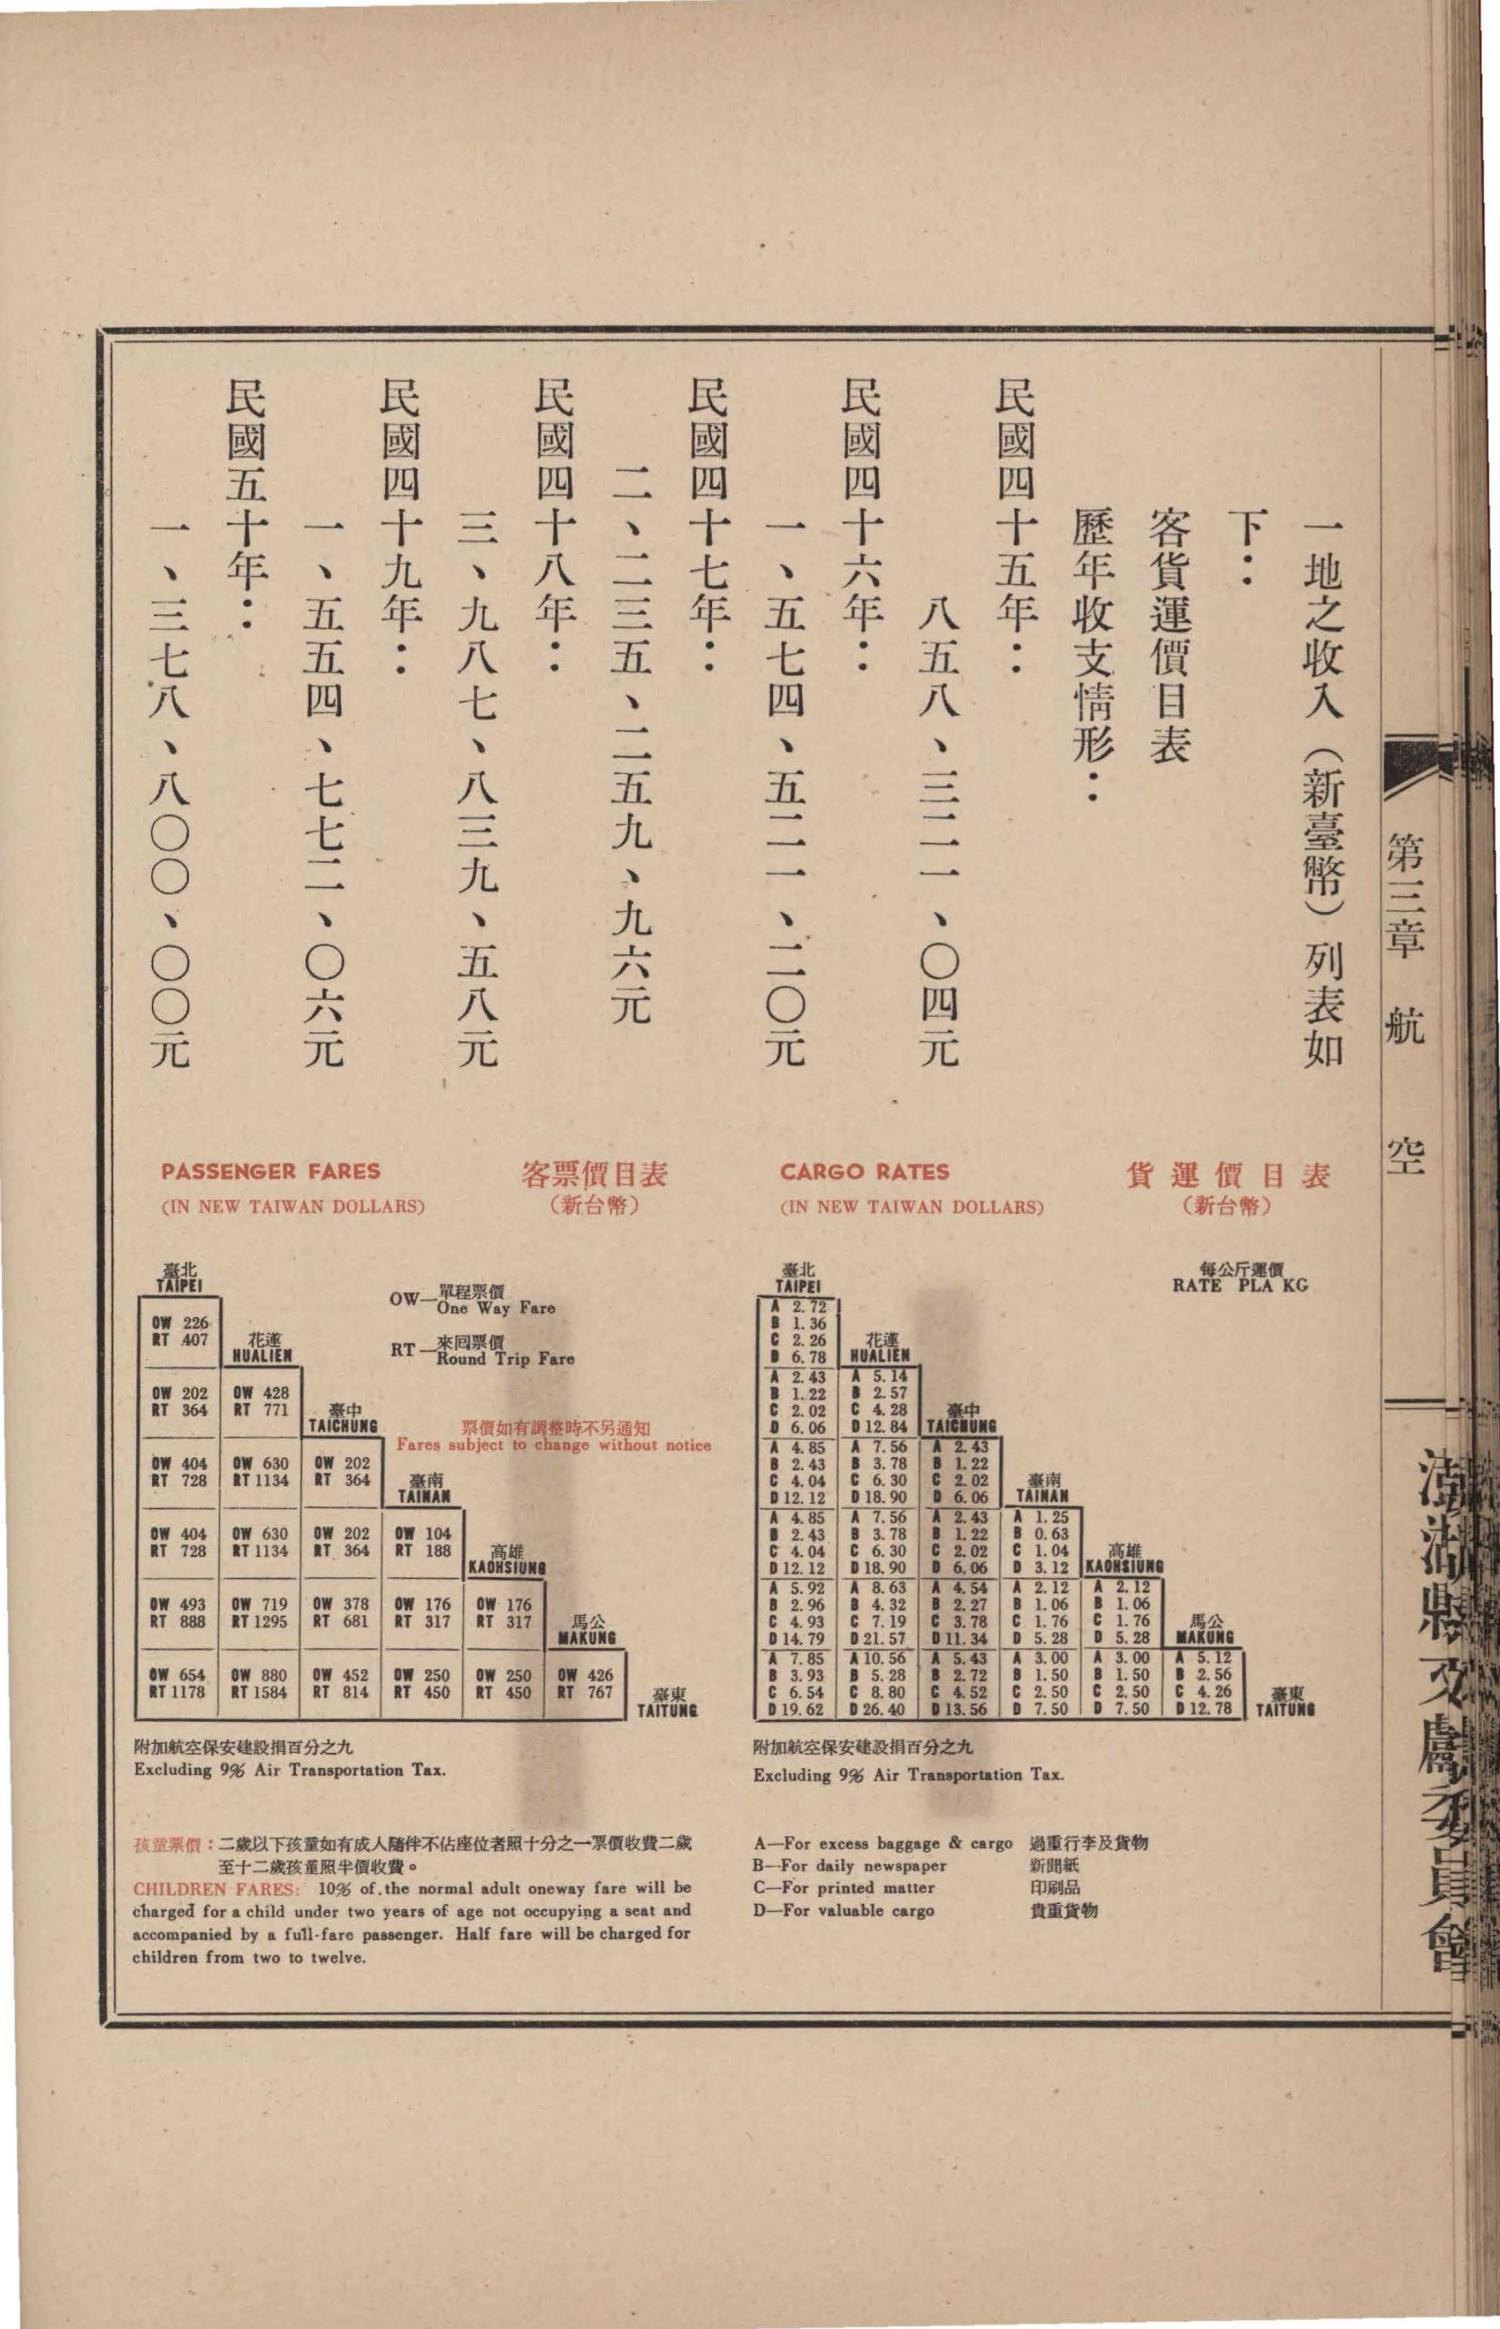 第三章　航　空
澎湖縣文獻委員會
一地之收入（新臺幣）列表如
下：
客貨運價目表
歷年收支情形：
民國四十五年：
八五八、三二一、〇四元
民國四十六年：
一、五七四、五二一、二〇元
民國四十七年：
二、二三五、二五九、九六元
民國四十八年：
三、九八七、八三九、五八元
民國四十九年：
一、五五四、七七二、〇六元
民國五十年：
一、三七八、八〇〇、〇〇元
PASSENGER FARES 客票價目表
(IN NEW TAIWAN DOLLARS) （新台幣）
臺北
TAIPEI
OW—單程票價
One Way Fare
RT—來回票價
Round Trip Fare
OW 226
RT 407
花蓮
HUALIEN
OW 202 OW 428
RT 364 RT 771
臺中
TAICHUNG
票價如有調整時不另通知
Fares subject to change without notice
OW 404 OW 630 OW 202
RT 728 RT 1134 RT 364
臺南
TAINAN
OW 404 OW 630 OW 202 OW 104
RT 728 RT 1134 RT 364 RT 188
高雄
KAOHSIUNG
OW 493 OW 719 OW 378 OW 176 OW 176
RT 888 RT 1295 RT 681 RT 317 RT 317
馬公
MAKUNG
OW 654 OW 880 OW 452 OW 250 OW 250 OW 426
RT 1178 RT 1584 RT 814 RT 450 RT 450 RT 767
臺東
TAITUNG
附加航空保安建設捐百分之九
Excluding 9% Air Transportation Tax.
孩童票價：二歲以下孩童如有成人隨伴不佔座位者照十分之一票價收費二歲
至十二歲孩童照半價收費。
CHILDREN FARES: 10% of the normal adult oneway fare will be
charged for a child under two years of age not occupying a seat and
accompanied by a full-fare passenger. Half fare will be charged for
children from two to twelve.
CARGO RATES 貨運價目表
(IN NEW TAIWAN DOLLARS) （新台幣）
每公斤運價
RATE PLA KG
臺北
TAIPEI
A 2.72
B 1.36
C 2.26
D 6.78
花蓮
HUALIEN
A 2.43 A 5.14
B 1.22 B 2.57
C 2.02 C 4.28
D 6.06 D 12.84
臺中
TAICHUNG
A 4.85 A 7.56 A 2.43
B 2.43 B 3.78 B 1.22
C 4.04 C 6.30 C 2.02
D 12.12 D 18.90 D 6.06
臺南
TAINAN
A 4.85 A 7.56 A 2.43 A 1.25
B 2.43 B 3.78 B 1.22 B 0.63
C 4.04 C 6.30 C 2.02 C 1.04
D 12.12 D 18.90 D 6.06 D 3.12
高雄
KAOHSIUNG
A 5.92 A 8.63 A 4.54 A 2.12 A 2.12
B 2.96 B 4.32 B 2.27 B 1.06 B 1.06
C 4.93 C 7.19 C 3.78 C 1.76 C 1.76
D 14.79 D 21.57 D 11.34 D 5.28 D 5.28
馬公
MAKUNG
A 7.85 A 10.56 A 5.43 A 3.00 A 3.00 A 5.12
B 3.93 B 5.28 B 2.72 B 1.50 B 1.50 B 2.56
C 6.54 C 8.80 C 4.52 C 2.50 C 2.50 C 4.26
D 19.62 D 26.40 D 13.56 D 7.50 D 7.50 D 12.78
臺東
TAITUNG
附加航空保安建設捐百分之九
Excluding 9% Air Transportation Tax.
A—For excess baggage & cargo 過重行李及貨物
B—For daily newspaper 新聞紙
C—For printed matter 印刷品
D—For valuable cargo 貴重貨物